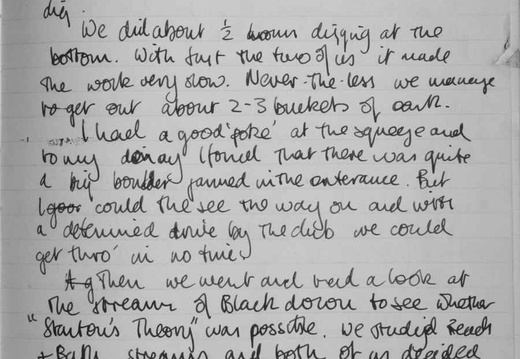 dig.
We did about ½ hours digging at the
bottom. With just the two of us it made
the work very slow. Never-the-less we manage
to get out about 2-3 buckets of earth.
I had a good 'poke' at the squeeze and
to my I found that there was quite
a big boulder jammed in the enterance. But
I could the see the way on and with
a determined drive by the club we could
get thro' in no time.
Then we went and had a look at
the streams of Black down to see whether
"Stanton's Theory" was possible. We studied Reads
+ streams and both of us decided